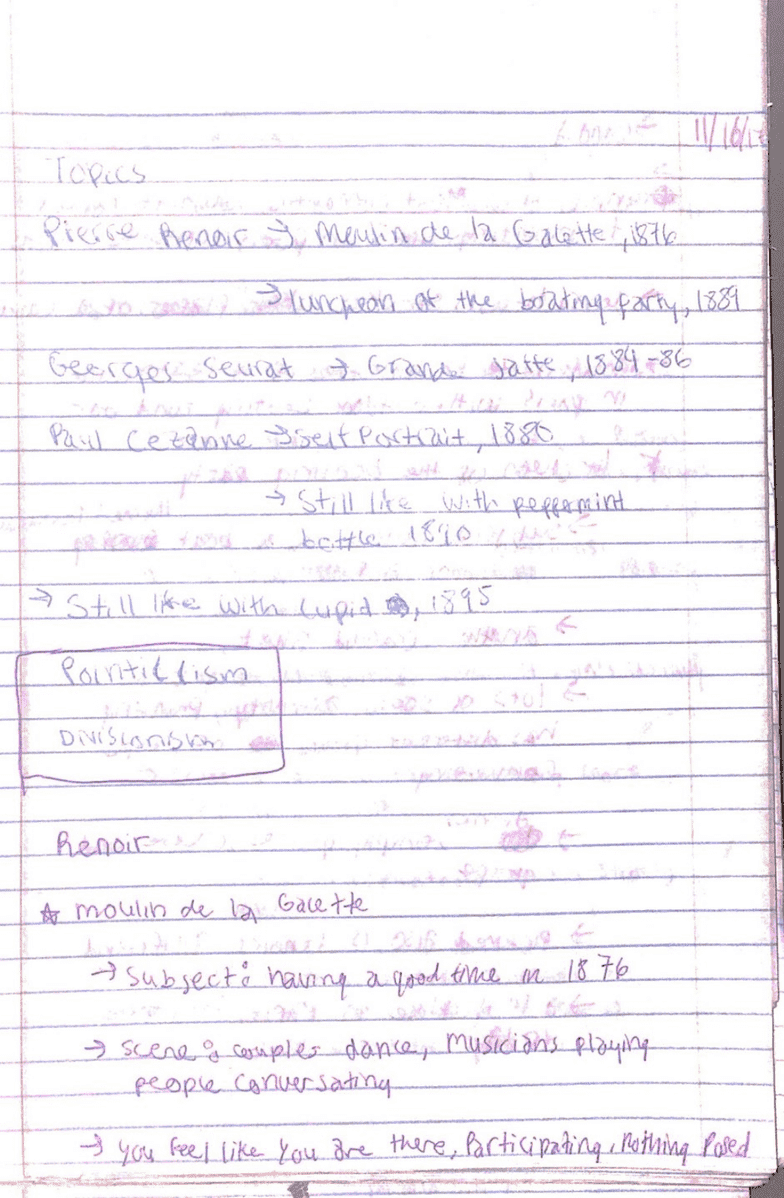 11/16/17
Topics
Pierre Renoir → Moulin de la Galette, 1876
→ luncheon of the boating party, 1881
Georges Seurat → Grande Jatte, 1884-86
Paul Cezanne → Self Portrait, 1880
→ Still like with peppermint
bottle 1890
→ Still like with Cupid, 1895
Pointillism
Divisionism
Renoir
☆ moulin de la Galette
→ Subject: having a good time in 1876
→ scene: couples dance, musicians playing
people conversating
→ you feel like you are there, Participating, Nothing Posed